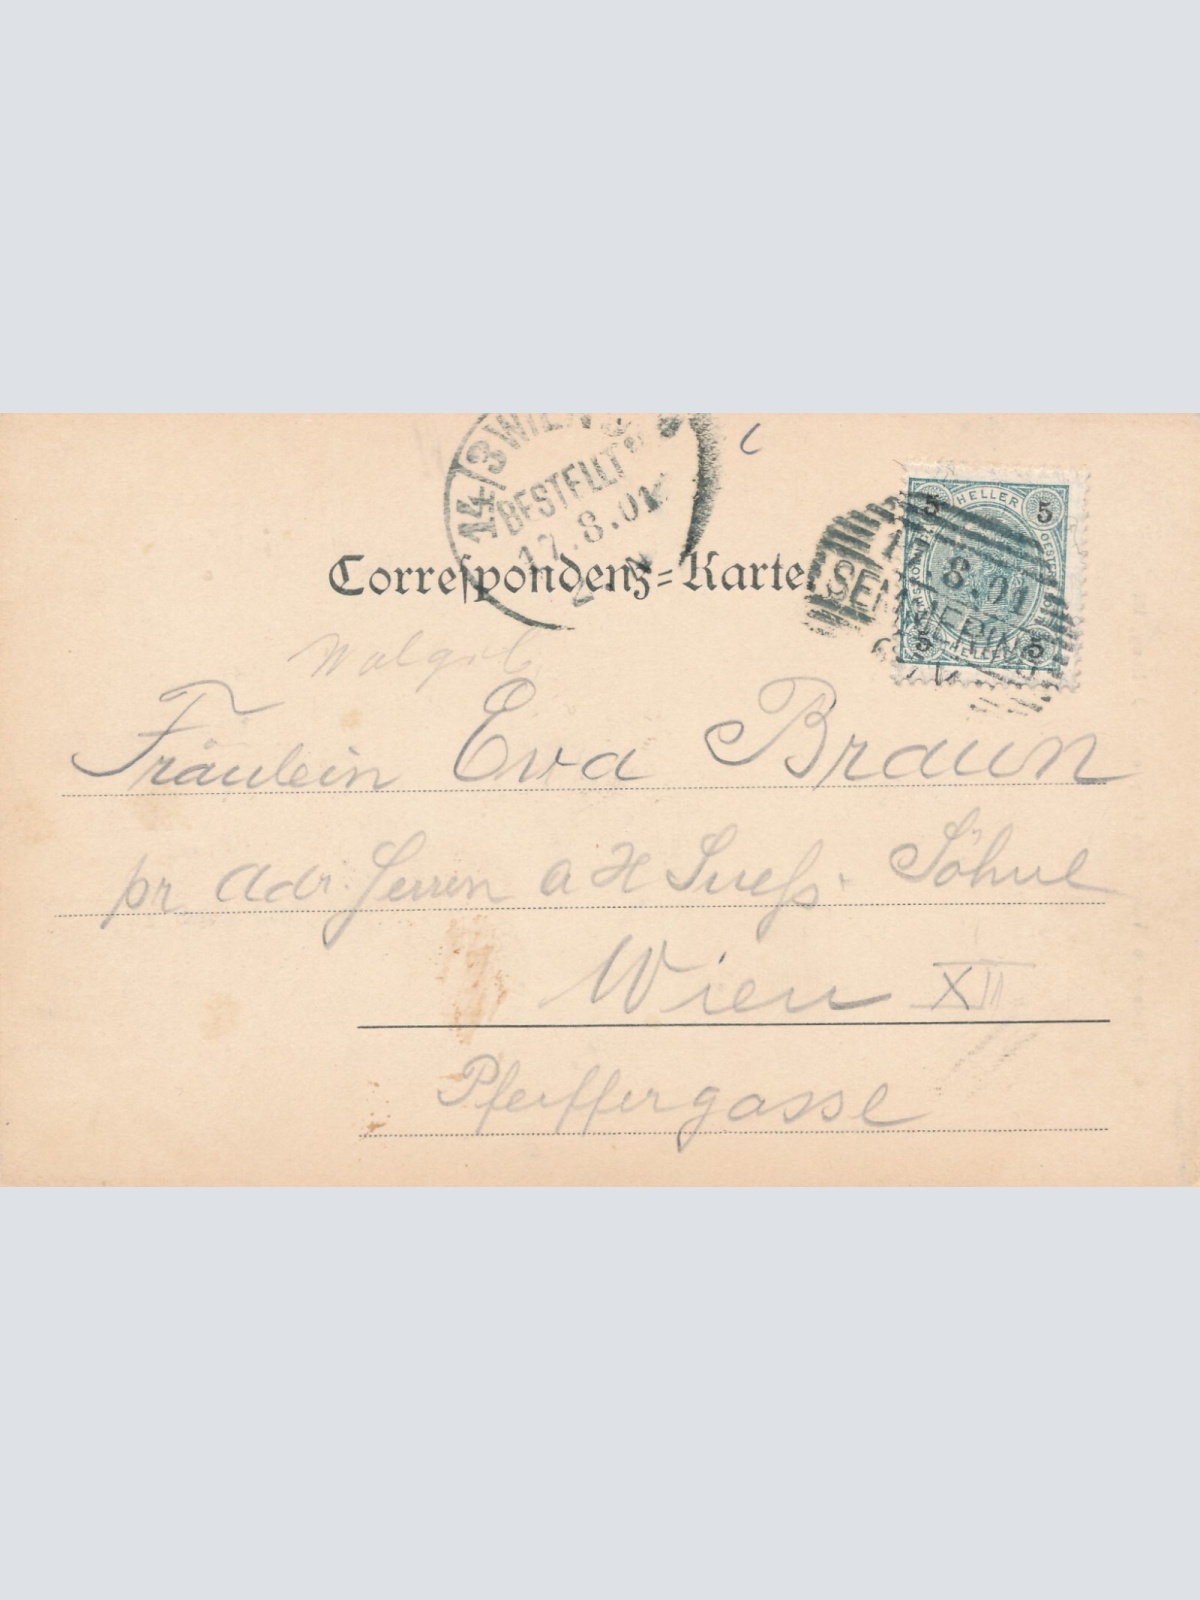 14/3 WIEN
BESTELLT
17.8.01
Correspondenz=Karte
5 HELLER 5
8.01
SEMMERING
5 HELLER 5
Fräulein Eva Braun
pr Adr. Herren A H Suess. Söhne
Wien XII
Pfeiffergasse